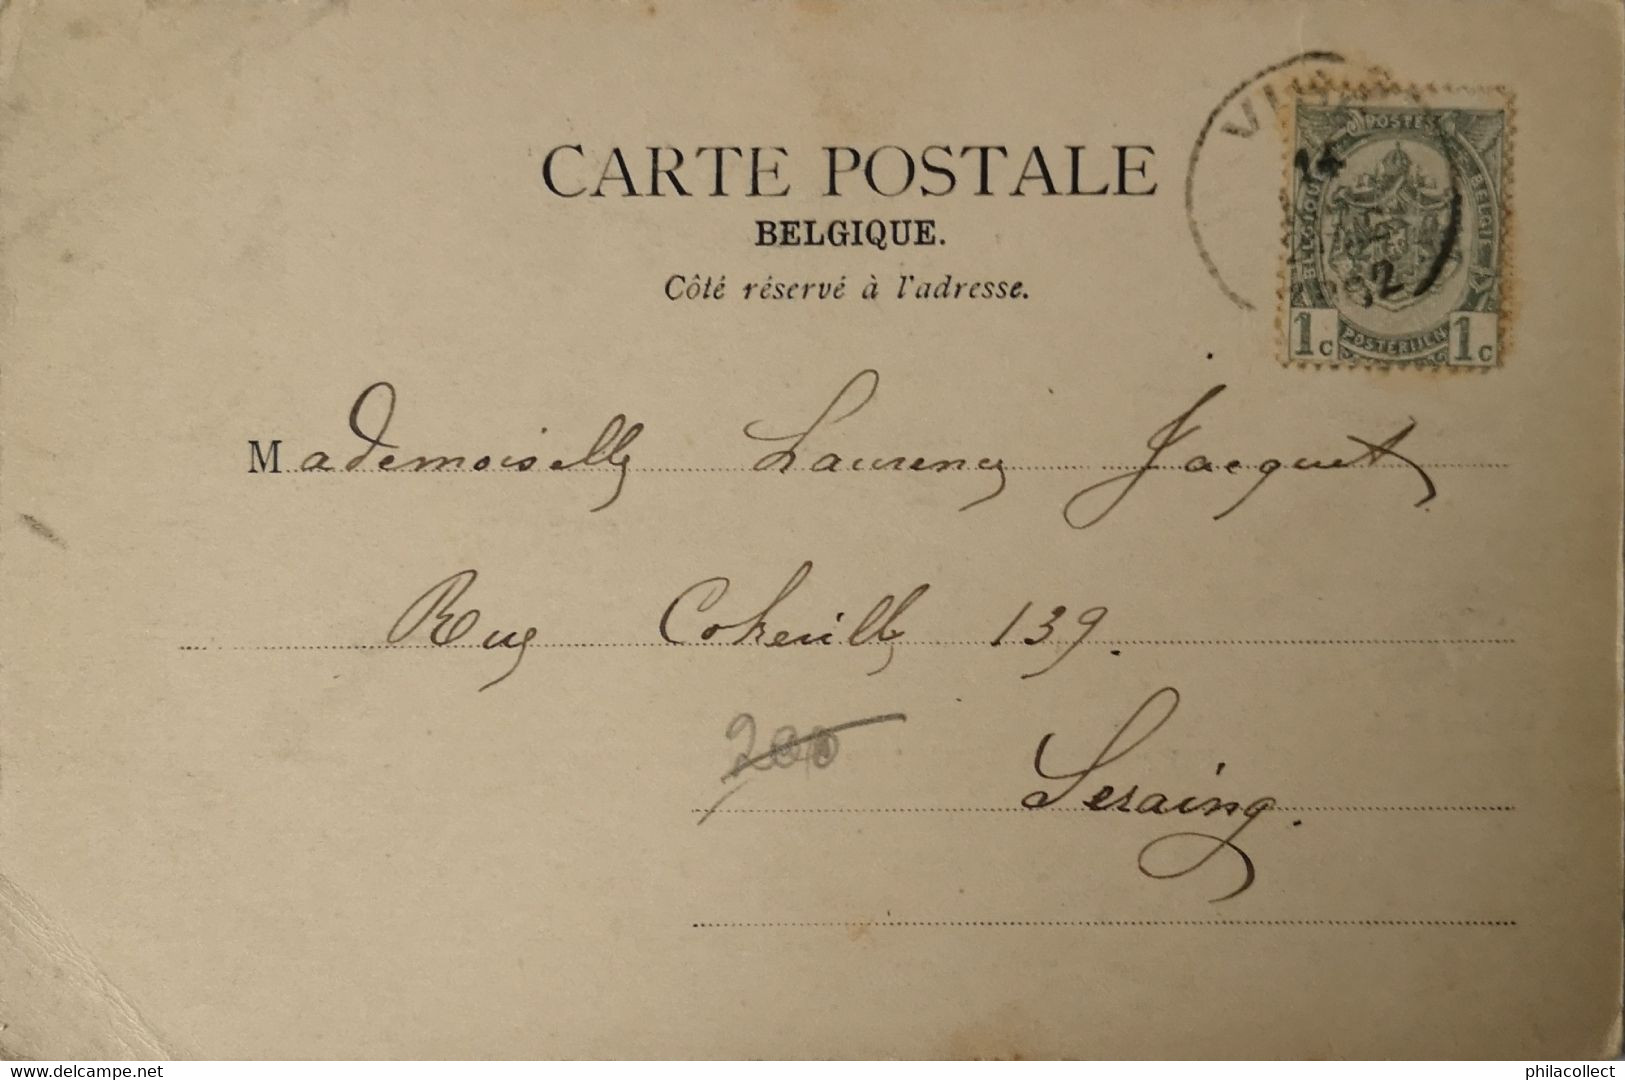 CARTE POSTALE
BELGIQUE.
Côté réservé à l'adresse.
POSTES
BELGIQUE
BELGIE
1c POSTERIJEN 1c
Mademoiselle Laurence Jacquet
Rue Cokerille 139.
200
Seraing.
delcampe.net
philacollect